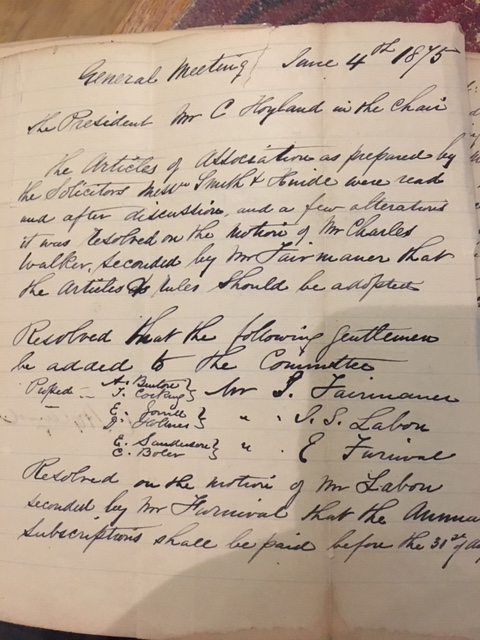 General Meeting June 4th 1875
The President Mr C Hoyland in the Chair
The Articles of Association as prepared by
the Solicitors Messrs Smith & Hinde were read
and after discussion, and a few alterations
it was resolved on the motion of Mr Charles
Walker, seconded by Mr Fairmaner that
the Articles & rules should be adopted
Resolved that the following gentlemen
be added to the Committee
A. Burton
J. Fairmaner
E.
Holmes " " I. S. Labon
E. Sanderson
C. Boler " E Furnival
Resolved on the motion of Mr Labon
seconded by Mr Furnival that the Annua
subscriptions shall be paid before the 31st of